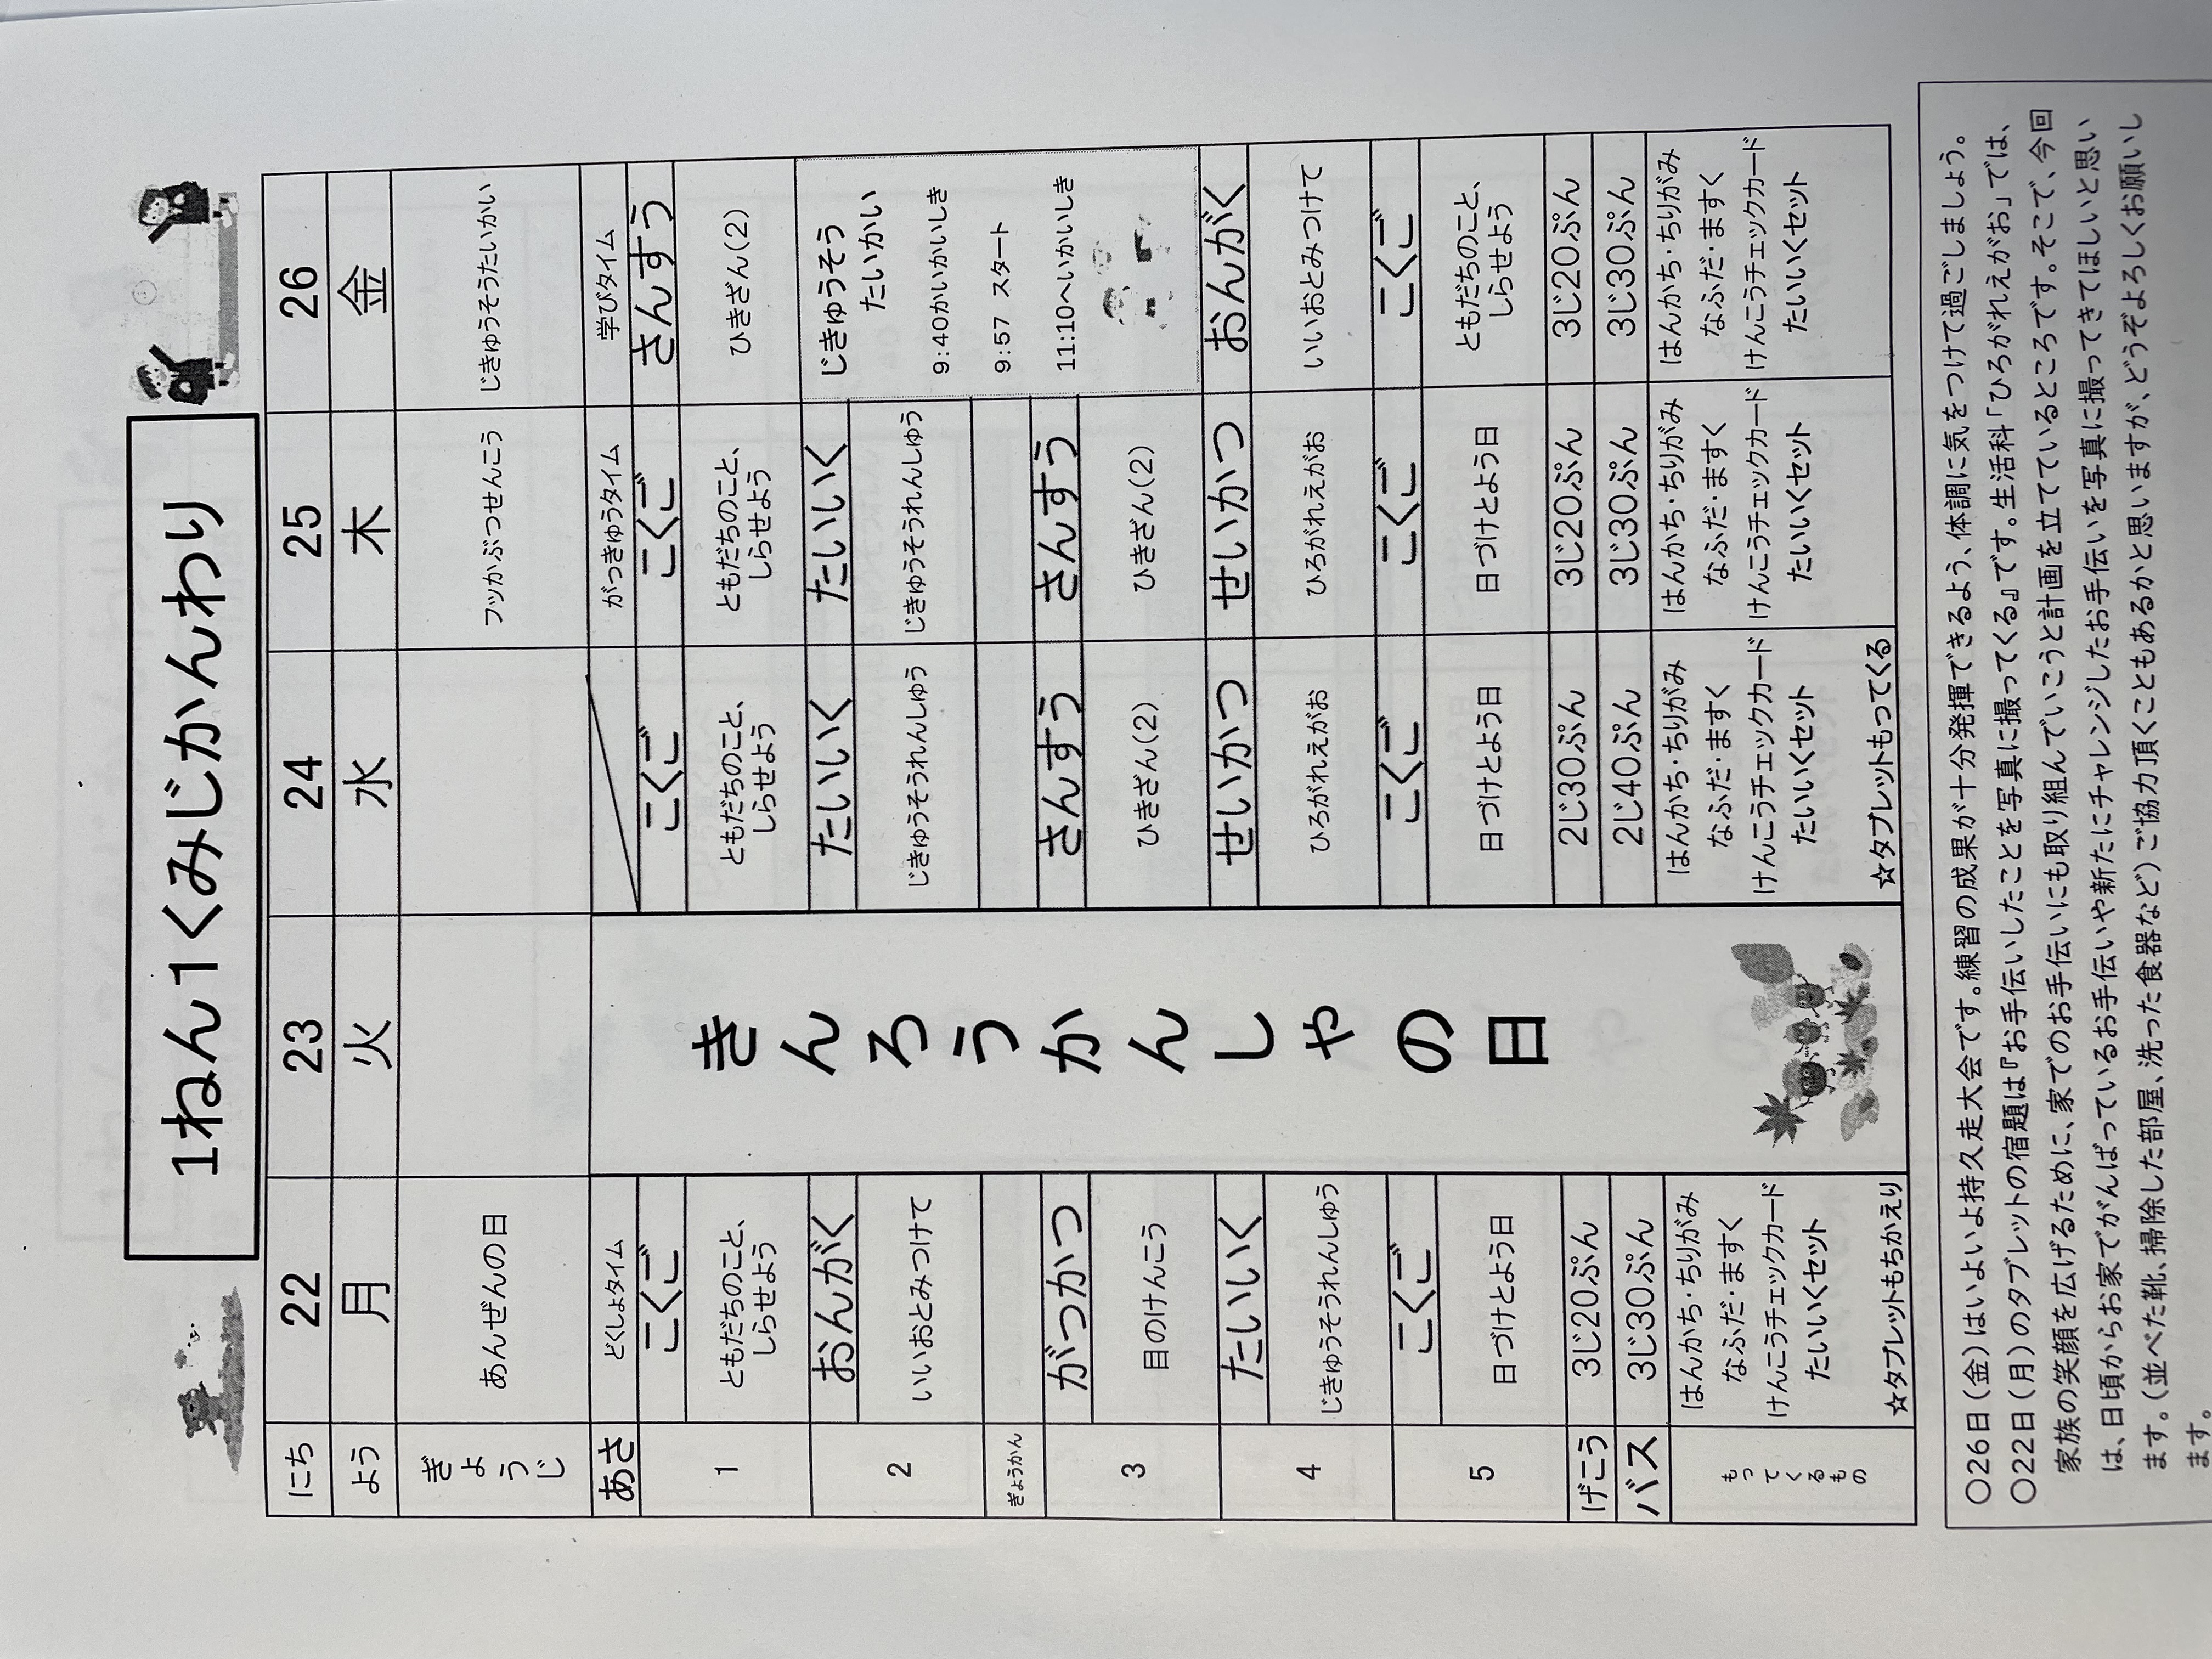 1ねん1くみじかんわり
にち 22 23 24 25 26
よう 月 火 水 木 金
ぎょうじ あんぜんの日 フッかぶつせんこう じきゅうそうたいかい
あさ どくしょタイム がつきゅうタイム 学びタイム
1 こくご こくご こくご さんすう
ともだちのこと、しらせよう ともだちのこと、しらせよう ともだちのこと、しらせよう ひきざん(2)
2 おんがく たいいく たいいく じきゅうそうたいかい
いいおとみつけて じきゅうそうれんしゅう じきゅうそうれんしゅう 9:40かいかいしき
ぎょうかん 9:57 スタート
3 がつかつ さんすう さんすう 11:10へいかいしき
目のけんこう ひきざん(2) ひきざん(2)
4 たいいく せいかつ せいかつ おんがく
じきゅうそうれんしゅう ひろがれえがお ひろがれえがお いいおとみつけて
5 こくご こくご こくご こくご
日づけとよう日 日づけとよう日 日づけとよう日 ともだちのこと、しらせよう
きんろうかんしゃの日
げこう 3じ20ぷん 2じ30ぷん 3じ20ぷん 3じ20ぷん
バス 3じ30ぷん 2じ40ぷん 3じ30ぷん 3じ30ぷん
もってくるもの はんかち・ちりがみ はんかち・ちりがみ はんかち・ちりがみ はんかち・ちりがみ
なふだ・ますく なふだ・ますく なふだ・ますく なふだ・ますく
けんこうチェックカード けんこうチェックカード けんこうチェックカード けんこうチェックカード
たいいくセット たいいくセット たいいくセット たいいくセット
☆タブレットもちかえり ☆タブレットもってくる
○26日(金)はいよいよ持久走大会です。練習の成果が十分発揮できるよう、体調に気をつけて過ごしましょう。
○22日(月)のタブレットの宿題は『お手伝いしたことを写真に撮ってくる』です。生活科「ひろがれえがお」では、
家族の笑顔を広げるために、家でのお手伝いにも取り組んでいこうと計画を立てているところです。そこで、今回
は、日頃からお家でがんばっているお手伝いや新たにチャレンジしたお手伝いを写真に撮ってきてほしいと思い
ます。(並べた靴、掃除した部屋、洗った食器など)ご協力頂くこともあるかと思いますが、どうぞよろしくお願いし
ます。